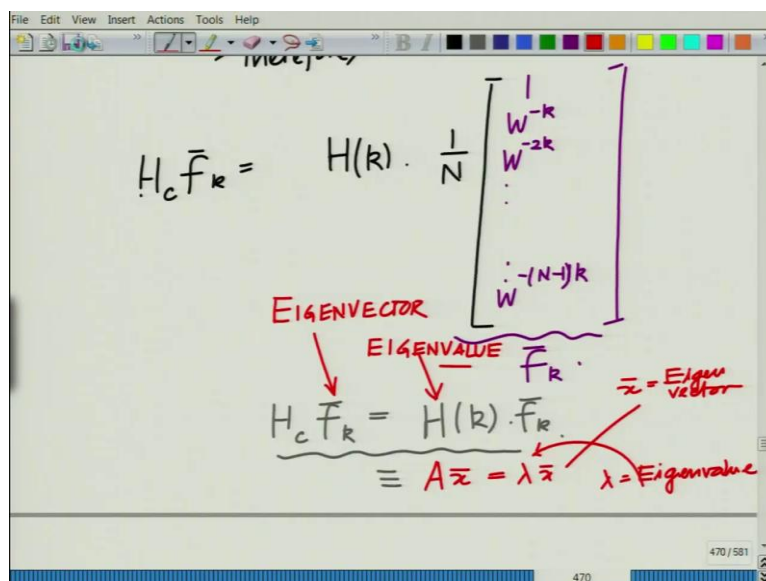 File Edit View Insert Actions Tools Help
B I
Therefore,
H_c F̄_k = H(k) . 1/N [ 1
W^{-k}
W^{-2k}
:
:
W^{-(N-1)k} ]
F̄_k .
EIGENVECTOR
EIGENVALUE
x̄ = Eigen vector
H_c F̄_k = H(k) . F̄_k .
≡ A x̄ = λ x̄
λ = Eigenvalue
470 / 581
470